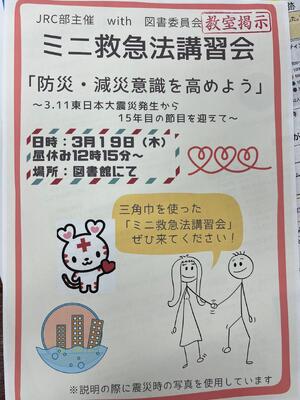 JRC部主催 with 図書委員会
教室掲示
ミニ救急法講習会
「防災・減災意識を高めよう」
～3.11東日本大震災発生から
15年目の節目を迎えて～
日時：3月19日（木）
昼休み12時15分～
場所：図書館にて
三角巾を使った
「ミニ救急法講習会」
ぜひ来てください！
※説明の際に震災時の写真を使用しています